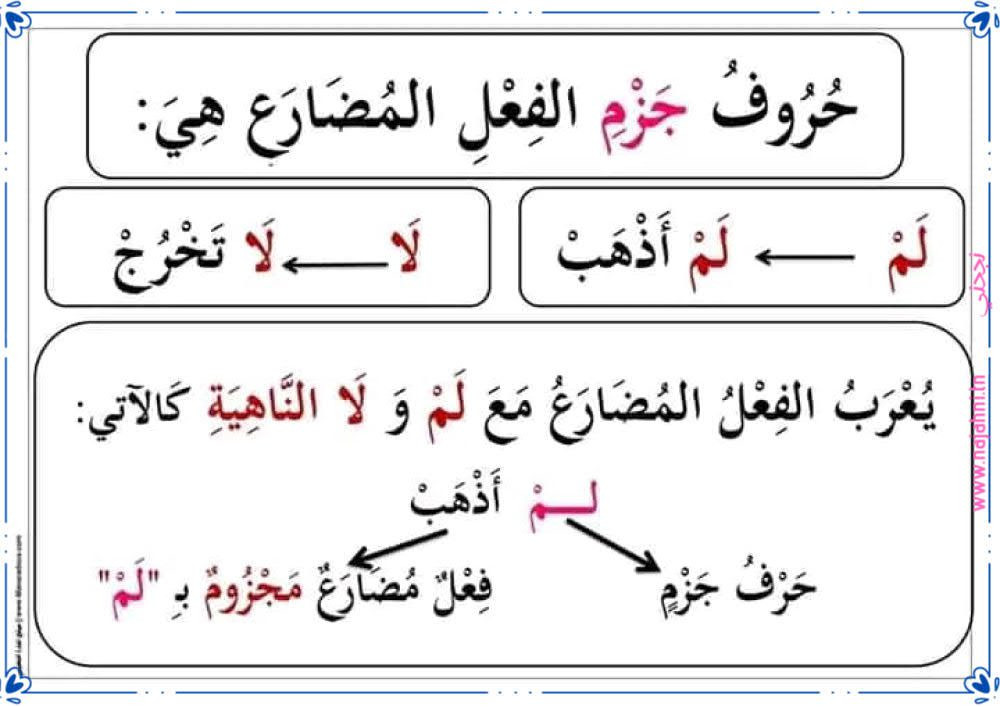 حُرُوفُ جَزْمِ الفِعْلِ المُضَارَعِ هِيَ:
لَمْ ← لَمْ أَذْهَبْ
لَا ← لَا تَخْرُجْ
يُعْرَبُ الفِعْلُ المُضَارَعُ مَعَ لَمْ وَ لَا النَّاهِيَةِ كَالآتي:
لــمْ أَذْهَبْ
حَرْفُ جَزْمٍ
فِعْلٌ مُضَارَعٌ مَجْزُومٌ بِـ "لَمْ"
نجحني
www.najahni.tn